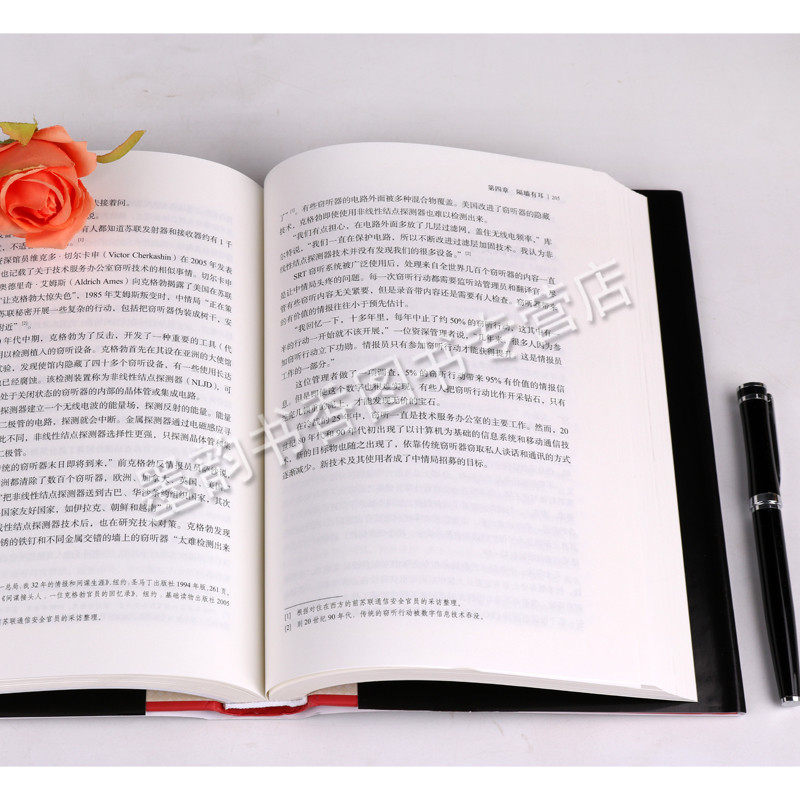 夫接着问。
有人都知道苏联发射器和接收器约有 1 千
”[1]
深馆员维克多·切尔卡申（Victor Cherkashin）在 2005 年发表
也记载了关于技术服务办公室窃听技术的相似事情。切尔卡申
奥德里奇·艾姆斯（Aldrich Ames）向克格勃揭露了美国在苏联
“让克格勃大惊失色”，1985 年艾姆斯叛变时，中情局“正在策
苏联秘密开展一些复杂的行动，包括把窃听器伪装成树干，安
附近”[2]。
年代中期，克格勃为了反击，开发了一种重要的工具（代
用以检测植人的窃听设备。克格勃首先在其设在亚洲的大使馆
试验，发现使馆内隐藏了四十多个窃听设备，有一些使用长达
已经腐蚀。该检测装置称为非线性结点探测器（NLJD），可
处于关闭状态的窃听器的内部的晶体管或集成电路。
探测器建立一个无线电波的能量场，探测反射的能量。能量
二极管的电路，探测就会中断。金属探测器通过电磁感应寻
此不同，非线性结点探测器选择性更强，只探测晶体管
二极管。
传统的窃听器末日即将到来，”前克格勃反情报员
洲都清除了数百个窃听器，欧洲、
“把非线性结点探测器送到古巴、华沙条约组织国家，其次
国家友好国家，如伊拉克、朝鲜和越南
线性结点探测器技术后，也在研究技术对策。克格勃发现
锈的铁钉和不同金属交错的墙上的窃听器“太难检测出来
总局：我 32 年的情报和间谍生涯》，纽约，圣马丁出版社 1994 年版，261 页。
《间谍接头人：一位克格勃官员的回忆录》，纽约，基础读物出版社 2005
前苏联通信安全官员的采访整理。
第四章 隔墙有耳 | 205
了”[1]。有些窃听器的电路外面被多种混合物覆盖。美国改进了窃听器的隐藏
技术，克格勃即使使用非线性结点探测器也难以检测出来。
“我们有点担心，在电路外面多放了几层过滤网，盖住无线电频率，”库
尔特说，“我们一直在保护电路，所以不断改进过滤层加固技术。我认为非
线性结点探测器技术并没有发现我们的很多设备。”[2]
SRT 窃听系统被广泛使用后，处理来自全世界几百个窃听器的内容一直
是让中情局头疼的问题。每一次窃听行动都需要监听站管理员和翻译官。尽
管有些窃听内容无关紧要，但是录音带内容还是需要有人检查。窃听器带来
的有价值的情报往往小于预先估计。
“我回忆一下，十多年里，每年中止了约 50% 的窃听行动，这其中有
的行动一开始就不该开展，”一位资深管理者说，“很多人因为参
加窃听行动立下功勋。情报员只有参加窃听行动才能获得提升，这是情报员
工作的一部分。”
这位管理者做了一项调查，5% 的窃听行动带来 95% 有价值的情报信
息。但是即使这个数字也很难实现，有些人把窃听行动比作开采钻石，只有
才能发现无价的宝石。
25 年中，窃听一直是技术服务办公室的主要工作。然而，20
世纪 80 年代和 90 年代初期出现了以计算机为基础的信息系统和移动通信技
术，新的目标物也随之出现了，依靠传统窃听器窃取私人谈话和通讯的方式
逐渐减少。新技术及其使用者成了中情局招募的目标。
[1] 根据对住在西方的前苏联通信安全官员的采访整理。
[2] 到 20 世纪 90 年代，传统的窃听行动被数字信息技术吞没。
墨韵书香图书专营店